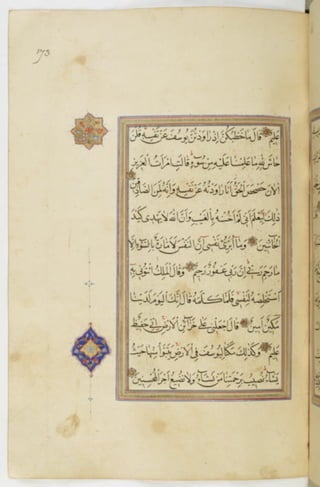 173
عليم قال ما خطبكن اذ راودتن يوسف عن نفسه قلن
حاش لله ما علمنا عليه من سوء قالت امرات العزيز
الان حصحص الحق انا راودته عن نفسه وانه لمن الصادقين
ذلك ليعلم اني لم اخنه بالغيب وان الله لا يهدي كيد
الخائنين وما ابرئ نفسي ان النفس لامارة بالسوء الا
ما رحم ربي ان ربي غفور رحيم وقال الملك ائتوني به
استخلصه لنفسي فلما كلمه قال انك اليوم لدينا
مكين امين قال اجعلني على خزائن الارض اني حفيظ
عليم وكذلك مكنا ليوسف في الارض يتبوا منها حيث
يشاء نصيب برحمتنا من نشاء ولا نضيع اجر المحسنين